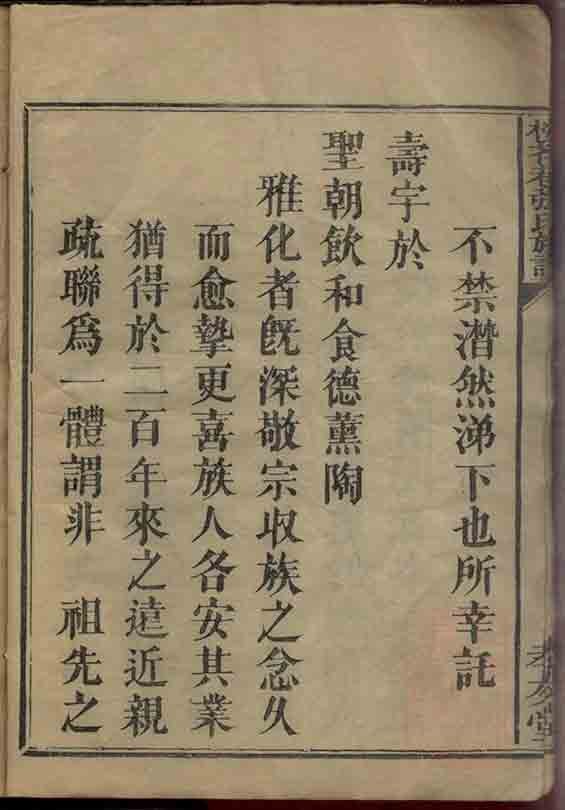 不禁潸然涕下也所幸託
壽宇於
聖朝飲和食德薰陶
雅化者旣深敬宗収族之念久
而愈摯更喜族人各安其業
猶得於二百年來之遠近親
疏聯爲一體謂非　祖先之